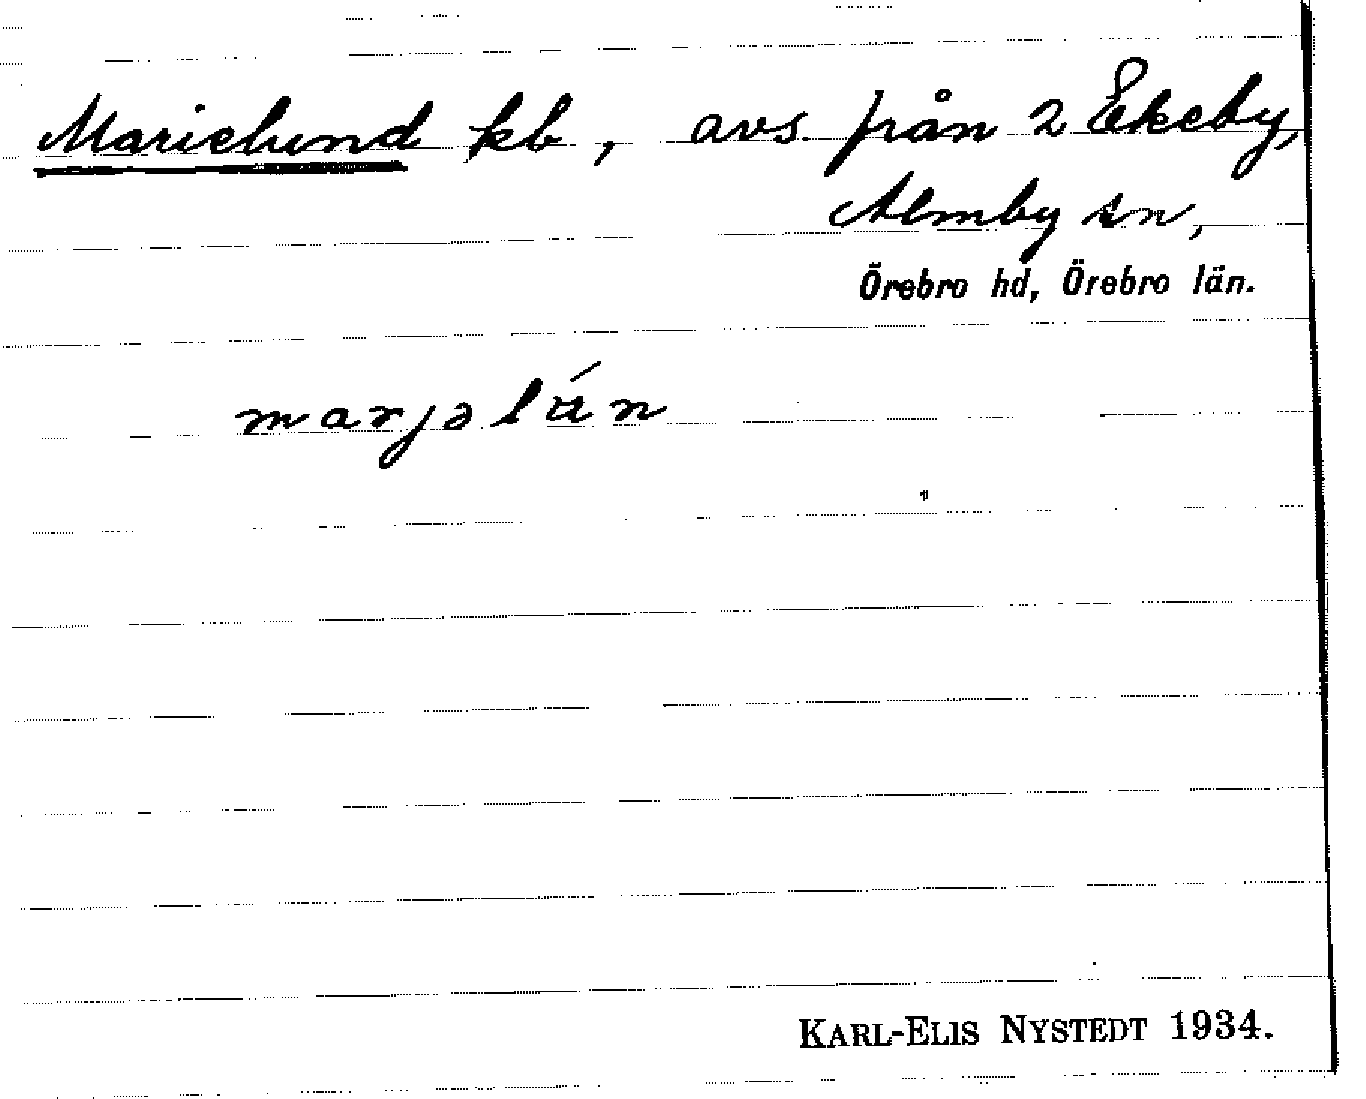 Marielund kb, avs. från 2 Ekeby,
Almby sn,
Örebro hd, Örebro län.
marjəlú̈n
KARL-ELIS NYSTEDT 1934.